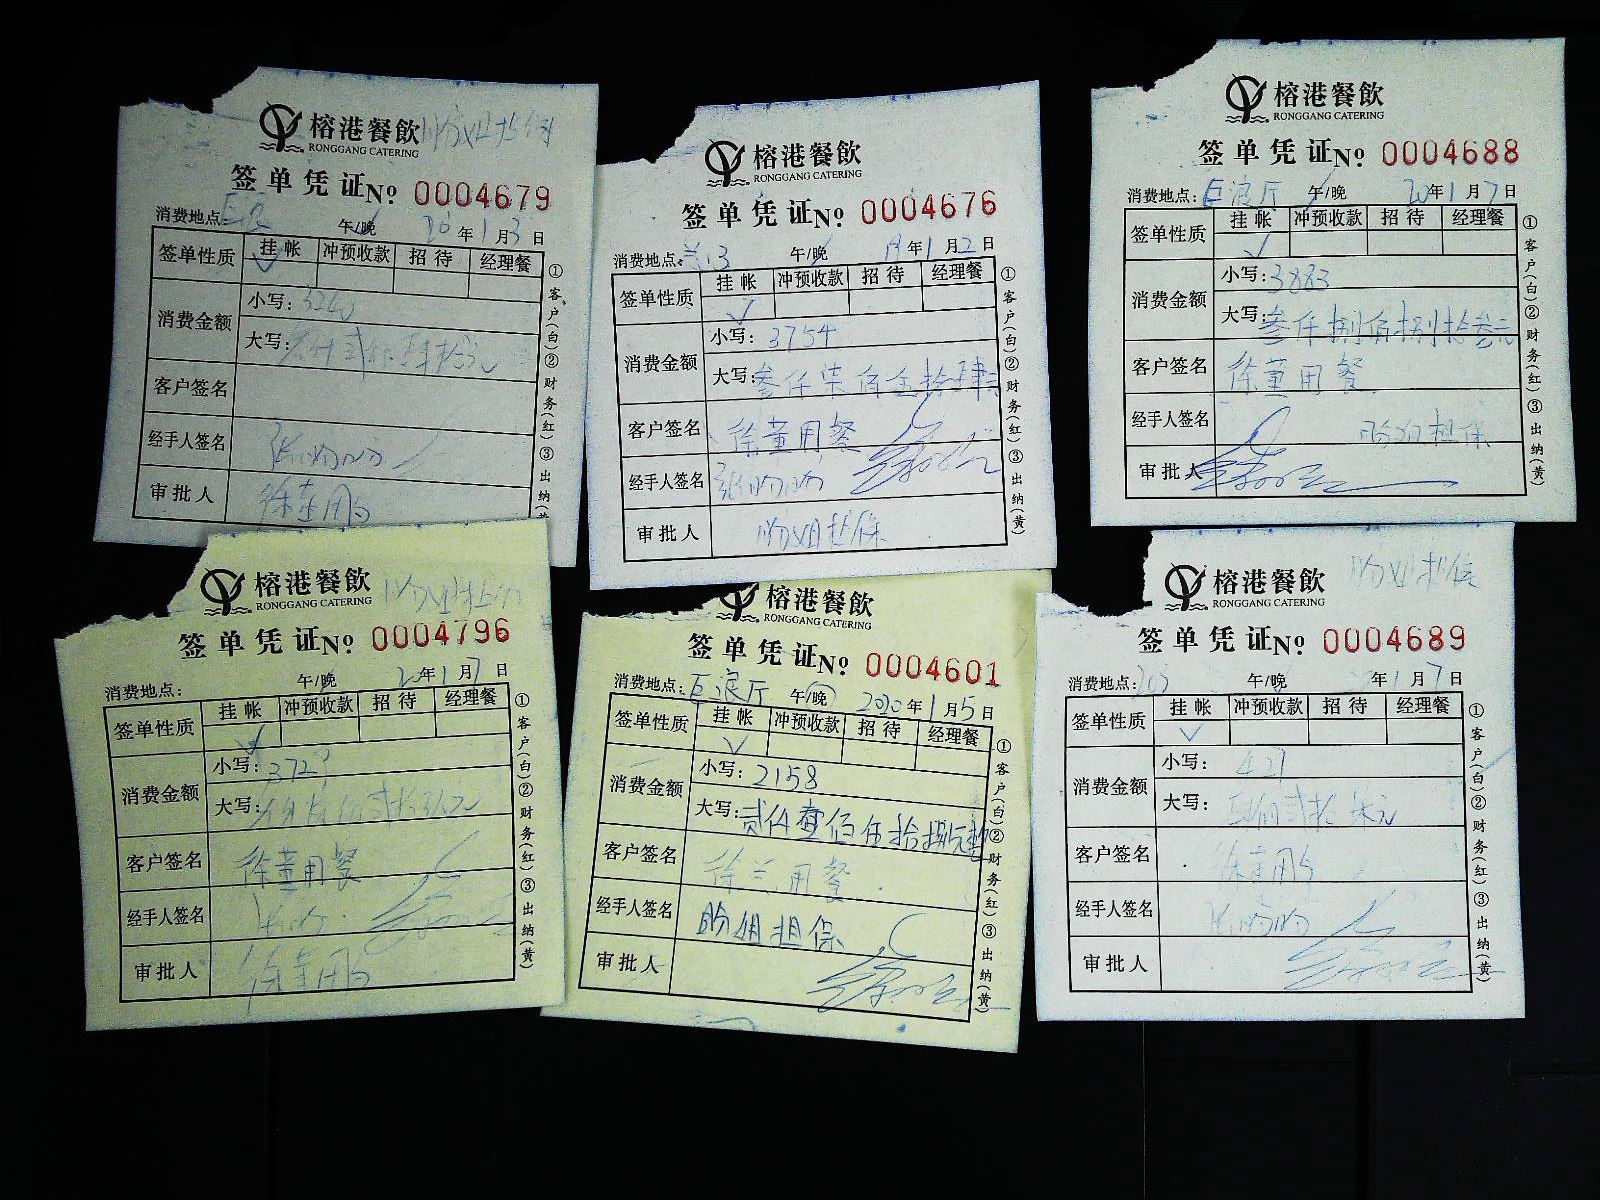 榕港餐飲
RONGGANG CATERING
盼姐担保
签单凭证No 0004679
消费地点: 午/晚 20年1月3日
签单性质 挂帐 冲预收款 招待 经理餐
✓
消费金额 小写: 3240
大写:
客户签名
经手人签名 张盼盼
审批人 徐董用
①客户(白)②财务(红)③出纳(黄)
榕港餐飲
RONGGANG CATERING
签单凭证No 0004676
消费地点: 午/晚 年1月2日
签单性质 挂帐 冲预收款 招待 经理餐
✓
消费金额 小写: 3754
大写: 叁仟柒佰伍拾肆元
客户签名 徐董用餐
经手人签名 张盼盼
审批人 盼姐担保
①客户(白)②财务(红)③出纳(黄)
榕港餐飲
RONGGANG CATERING
签单凭证No 0004688
消费地点: 巨浪厅 午/晚 20年1月7日
签单性质 挂帐 冲预收款 招待 经理餐
✓
消费金额 小写: 3883
大写: 叁仟捌佰捌拾叁元
客户签名 徐董用餐
经手人签名 盼姐担保
审批人
①客户(白)②财务(红)③出纳(黄)
榕港餐飲
RONGGANG CATERING
盼姐担保
签单凭证No 0004796
消费地点: 午/晚 20年1月7日
签单性质 挂帐 冲预收款 招待 经理餐
✓
消费金额 小写: 372
大写:
客户签名 徐董用餐
经手人签名
审批人 徐董用
①客户(白)②财务(红)③出纳(黄)
榕港餐飲
RONGGANG CATERING
签单凭证No 0004601
消费地点: 巨浪厅 午/晚 2020年1月5日
签单性质 挂帐 冲预收款 招待 经理餐
✓
消费金额 小写: 2158
大写: 贰仟壹佰伍拾捌元整
客户签名 徐兰用餐
经手人签名 盼姐担保
审批人
①客户(白)②财务(红)③出纳(黄)
榕港餐飲
RONGGANG CATERING
盼姐担保
签单凭证No 0004689
消费地点: 午/晚 年1月7日
签单性质 挂帐 冲预收款 招待 经理餐
✓
消费金额 小写: 427
大写:
客户签名 徐董用
经手人签名 张盼盼
审批人
①客户(白)②财务(红)③出纳(黄)